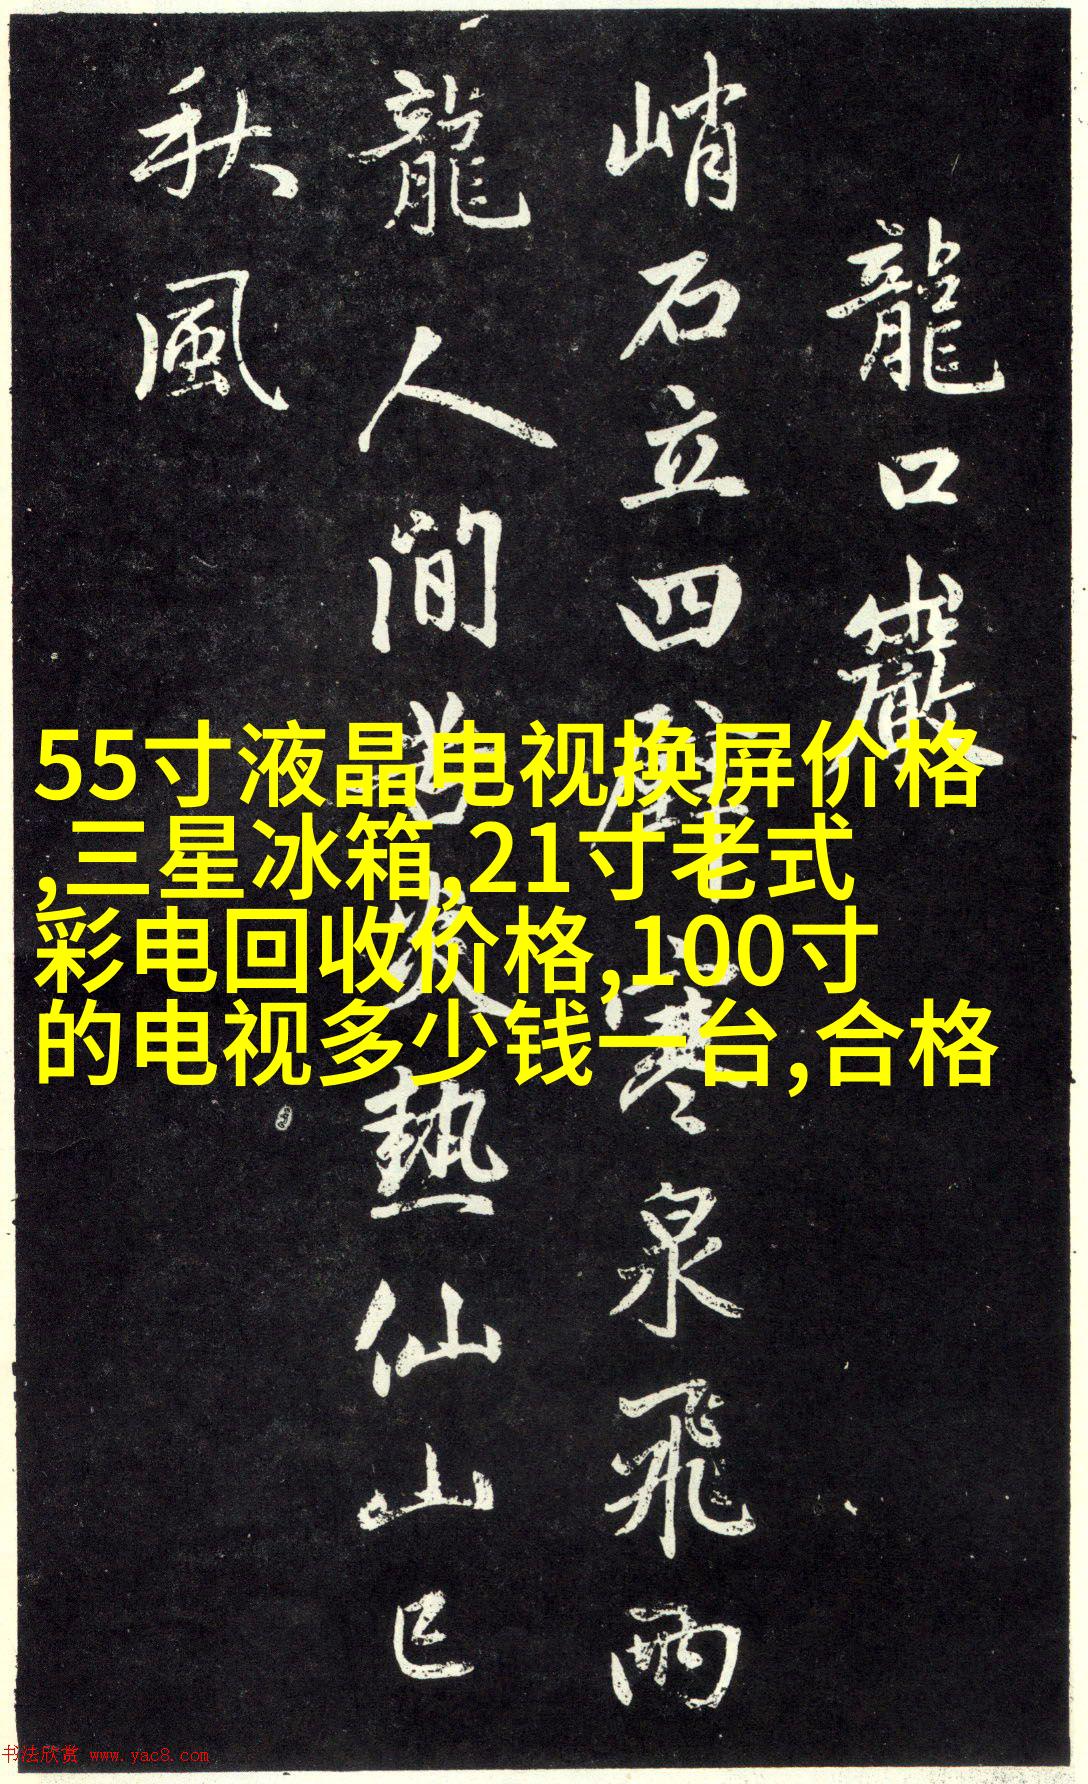 龍口巖
峭石立四壁寒泉飛雨
龍人間苦炎熱仙山已
秋風
55寸液晶电视换屏价格
,三星冰箱,21寸老式
彩电回收价格,100寸
的电视多少钱一台,合格
书法欣赏 www.yac8.com